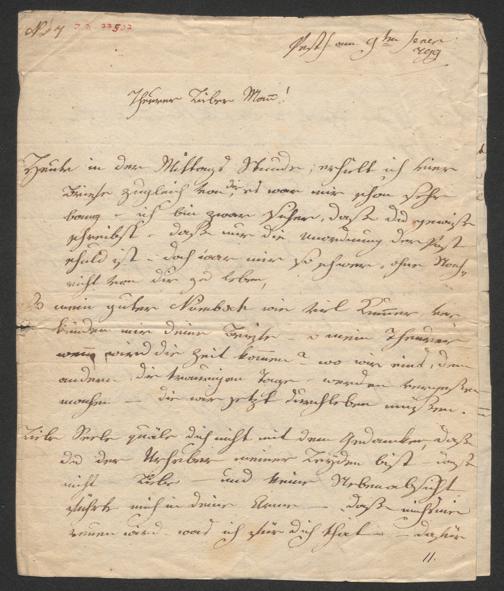 N 7 J. N. 22522
Pesth am 9ten Jener
799
Theurer Lieber Mann!
Heute in der Mittags Stunde, erhielt ich vier
Briefe zugleich von dir, es war mir schon sehr
bang – ich bin zwar sicher, dass du gewiss
schreibst – dass nur die Unordnung der Post
schuld ist – doch war mir so schwer, ohne
nicht von dir zu leben,
O mein guter wie viel Kummer
mir deine Briefe – o mein Theurer
wann wird die Zeit kommen? wo wir eins, dem
andern, die traurigen Tage – werden vergessen
machen – die wir jetzt durchleben müssen.
Liebe Seele quäle dich nicht mit dem Gedanken, dass
du der Urheber meiner Leyden bist
nicht Liebe – und keine Nebenabsicht
führte mich in deine Arme – dass
reuen wird was ich für dich that – dafür
11.